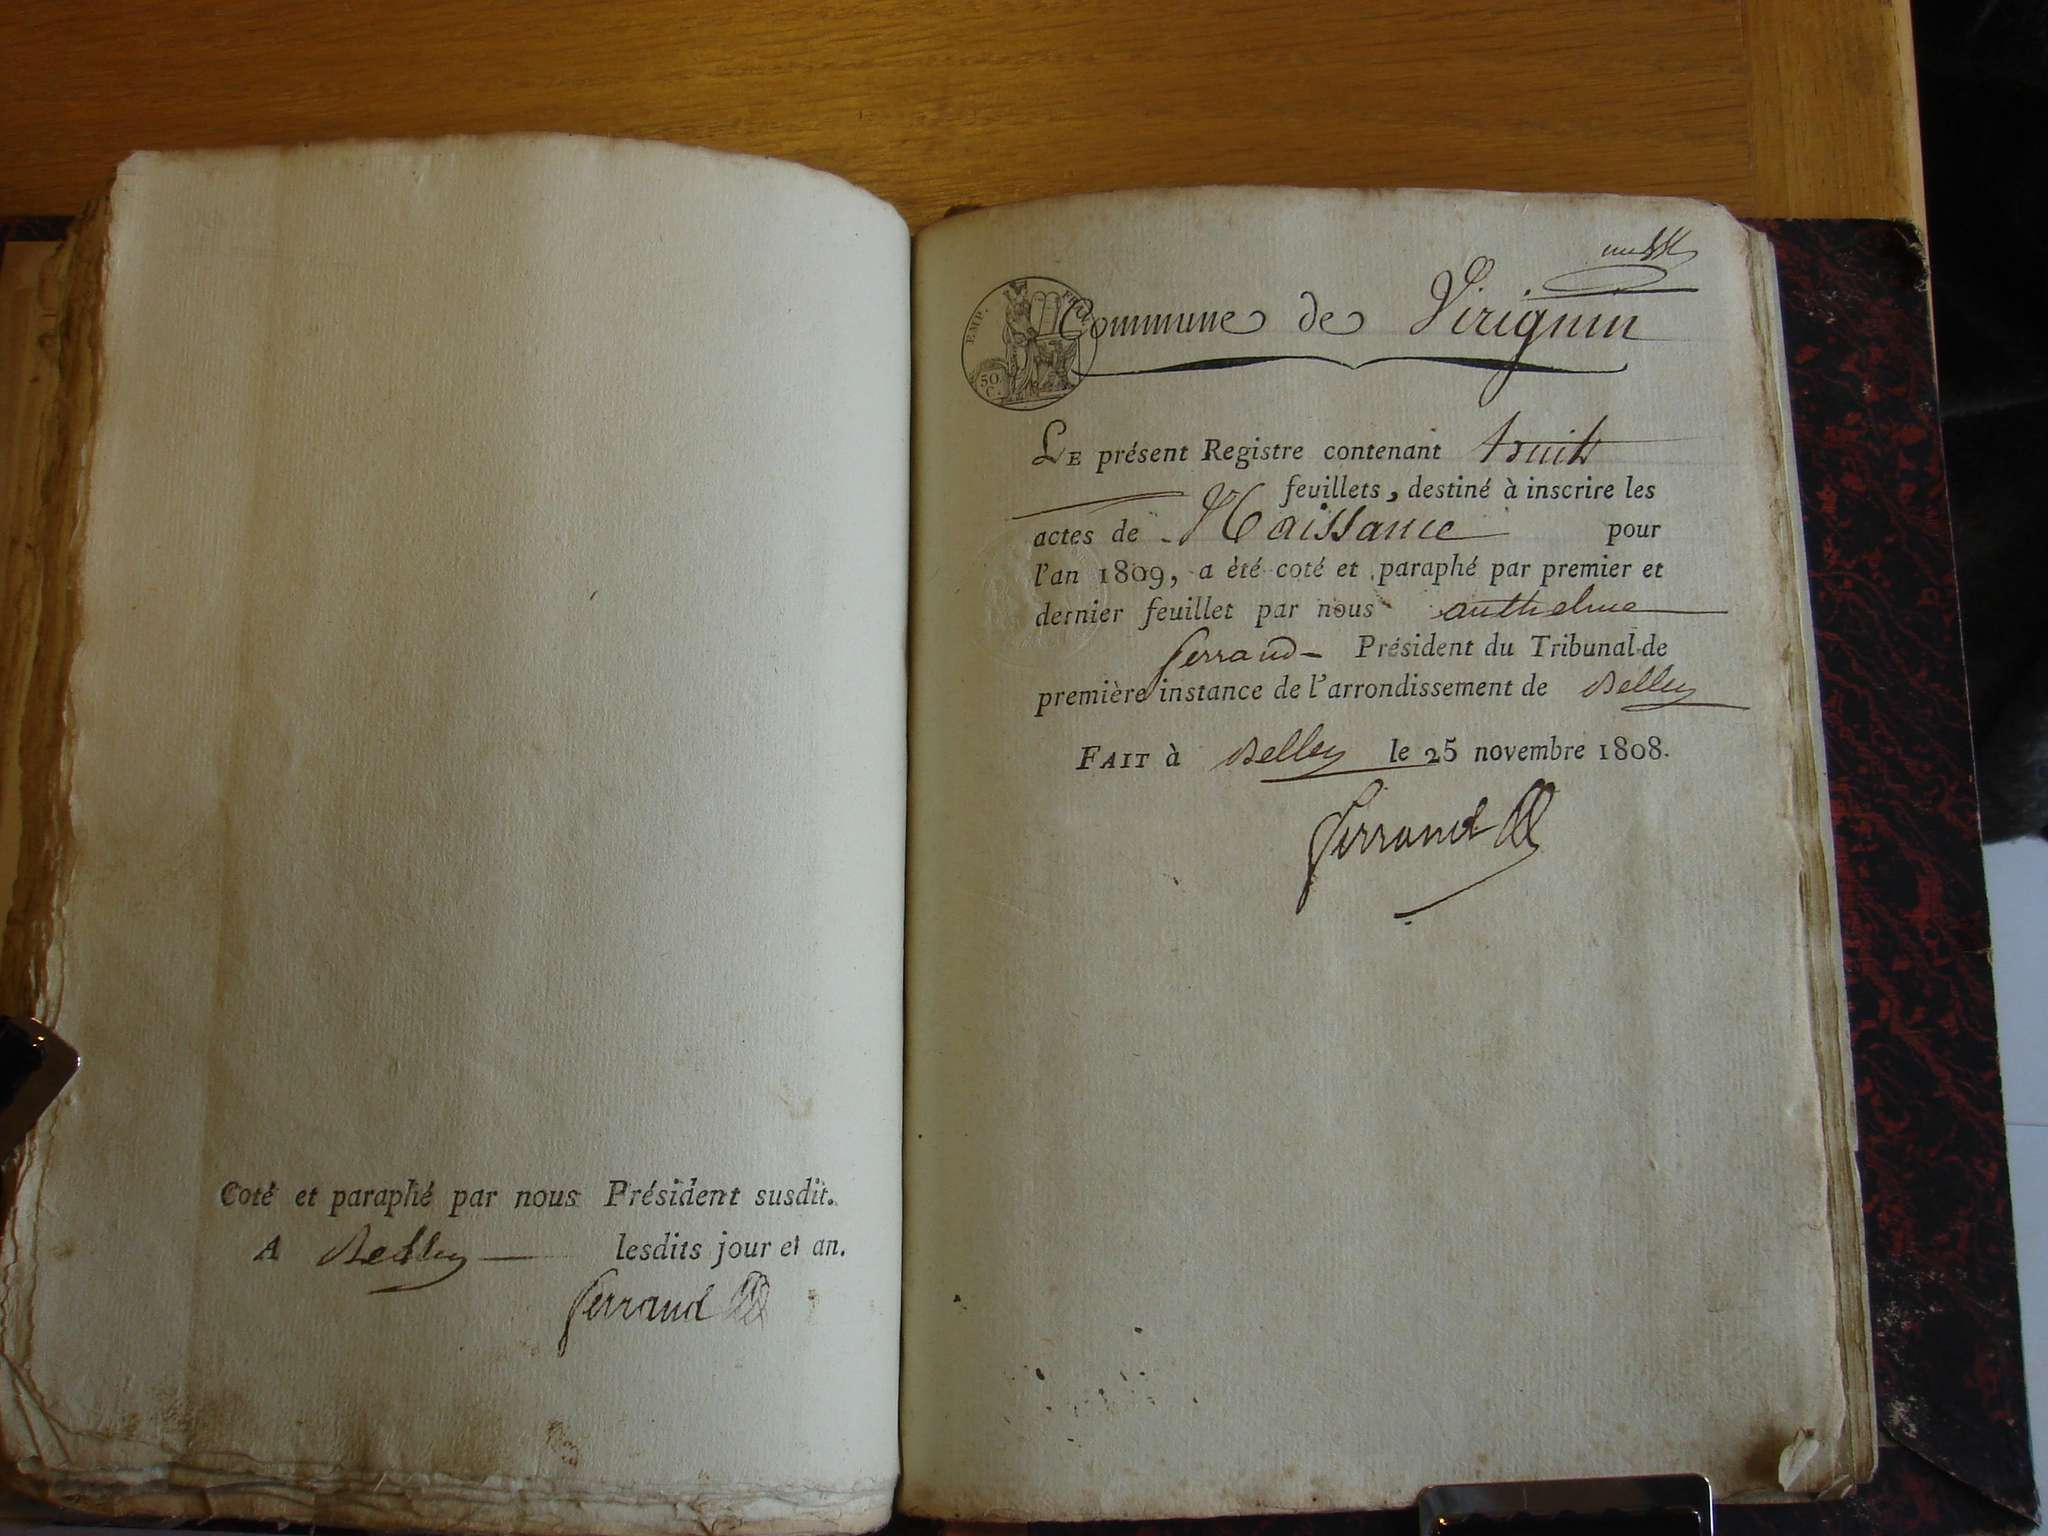 Coté et paraphé par nous Président susdit.
A Belley lesdits jour et an.
Ferrand
EMP. FRAN.
50 C.
Commune de Virignin
LE présent Registre contenant huit
feuillets, destiné à inscrire les
actes de Naissance pour
l'an 1809, a été coté et paraphé par premier et
dernier feuillet par nous anthelme
ferrand Président du Tribunal de
première instance de l'arrondissement de Belley
FAIT à Belley le 25 novembre 1808.
Ferrand